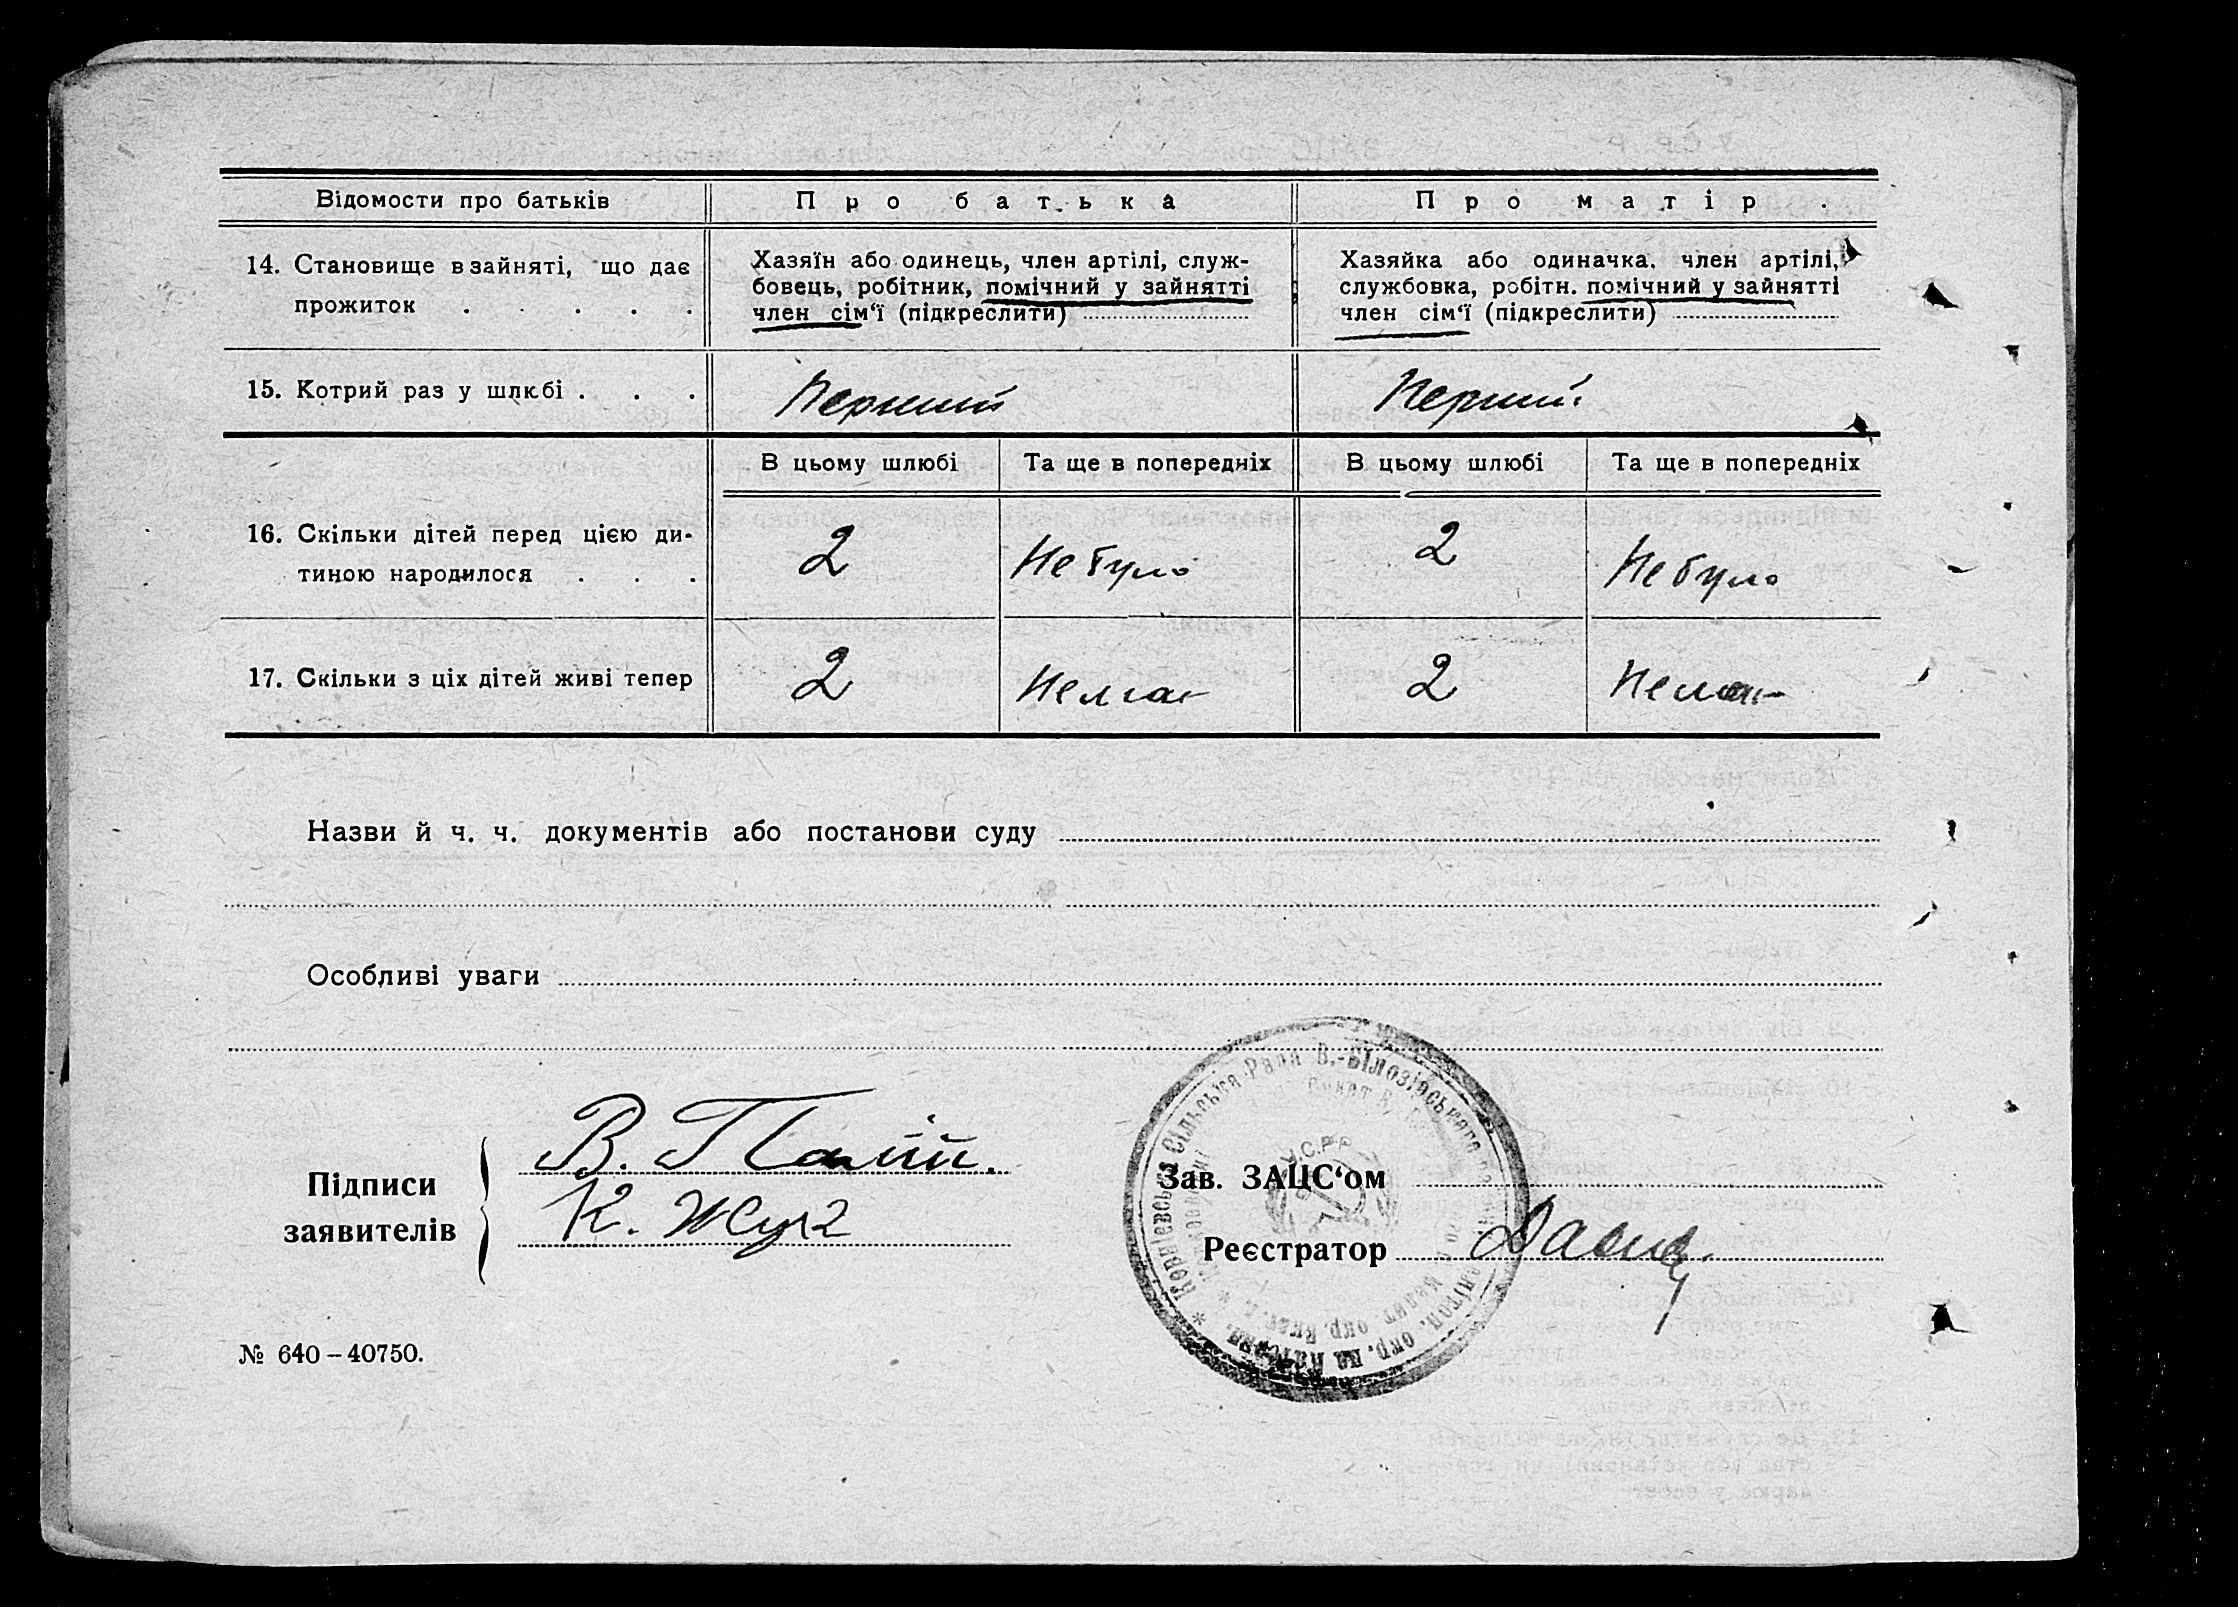 Відомости про батьків
Про батька
Про матір
14. Становище в зайняті, що дає
прожиток . . . .
Хазяїн або одинець, член артілі, служ-
бовець, робітник, помічний у зайнятті
член сім'ї (підкреслити)
Хазяйка або одиначка, член артілі,
службовка, робітн. помічний у зайнятті
член сім'ї (підкреслити)
15. Котрий раз у шлюбі . . .
Перший
Перший
В цьому шлюбі
Та ще в попередніх
В цьому шлюбі
Та ще в попередніх
16. Скільки дітей перед цією ди-
тиною народилося . . .
2
Не було
2
Не було
17. Скільки з ціх дітей живі тепер
2
Немає
2
Немає
Назви й ч. ч. документів або постанови суду
Особливі уваги
Підписи
заявителів
В. Палій.
К. Жук
Зав. ЗАЦС'ом
Реєстратор
Корнієвська Сільська Рада В.-Білозірського
У.С.Р.Р.
№ 640-40750.